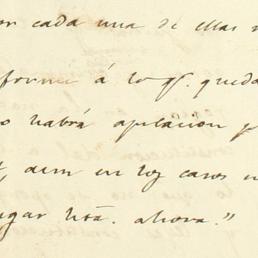 con cada una de ellas
forme á lo q.e queda
o habrá apelacion p
, aun en los casos en
ugar htã. ahora."